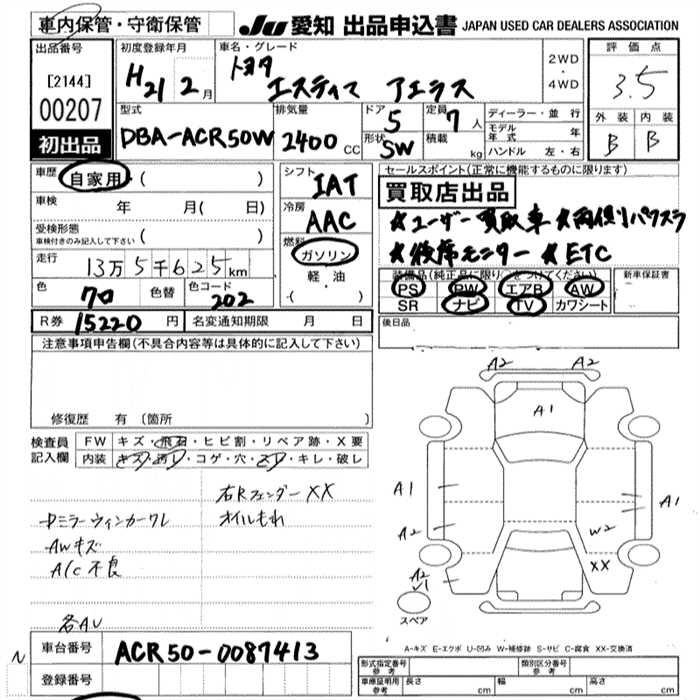 車内保管・守衛保管
JU 愛知 出品申込書 JAPAN USED CAR DEALERS ASSOCIATION
出品番号
[2144]
00207
初出品
初度登録年月
H21 2月
車名・グレード
トヨタ
エスティマ アエラス
2WD
・
4WD
評価点
3.5
外装 内装
B B
型式
DBA-ACR50W
排気量
2400 CC
ドア
5
形状
SW
定員
7人
積載
kg
ディーラー・並行
モデル年式 年
ハンドル 左・右
車歴 自家用 ( )
車検 年 月( 日)
受検形態
車検付きのみ記入して下さい ( )
走行
13万5千625km
色
70
色替
色コード
202
R券 15220 円
名変通知期限 月 日
シフト
IAT
冷房
AAC
燃料
ガソリン
軽・油
( )
セールスポイント(正常に機能するものに限ります)
買取店出品
★ユーザー買取車 ★両側パワスラ
★後席モニター ★ETC
装備品(純正品に限り○をつけてください)
PS PW エアB AW
SR ナビ TV カワシート
新車保証書
後日品
注意事項申告欄(不具合内容等は具体的に記入して下さい)
修復歴 有 (箇所
検査員
記入欄
FW キズ・飛石・ヒビ割・リペア跡・X要
内装 キズ・汚レ・コゲ・穴・スレ・キレ・破レ
右Rフェンダー XX
オイルもれ
ドミラーウィンカーワレ
AWキズ
A/C不良
各AU
N
A2 A2
A1
A1
A2
A1
W2
XX
A2
√1
スペア
A-キズ E-エクボ U-凹み W-補修跡 S-サビ C-腐食 XX-交換済
車台番号 ACR50-0087413
登録番号
形式指定番号
参考
類別区分番号
参考
車庫証明用
参考
長さ cm 幅 cm 高さ cm